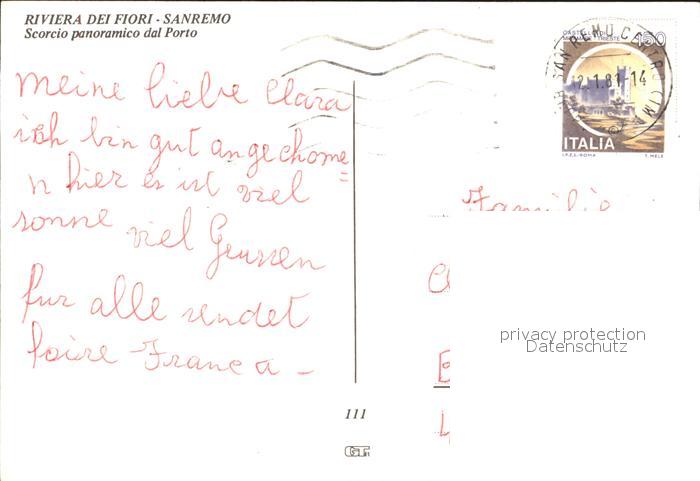 RIVIERA DEI FIORI - SANREMO
Scorcio panoramico dal Porto
Meine liebe Clara
ich bin gut angechome=
n hier es ist viel
sonne viel Grussen
fur alle sendet
Franca -
111
CASTELLO DI
MIRAMARE - TRIESTE 150
SAN REMO CENTRO (IM)
12.1.81-14
ITALIA
I.P.Z.S.-ROMA T. MELE
Familie
privacy protection
Datenschutz